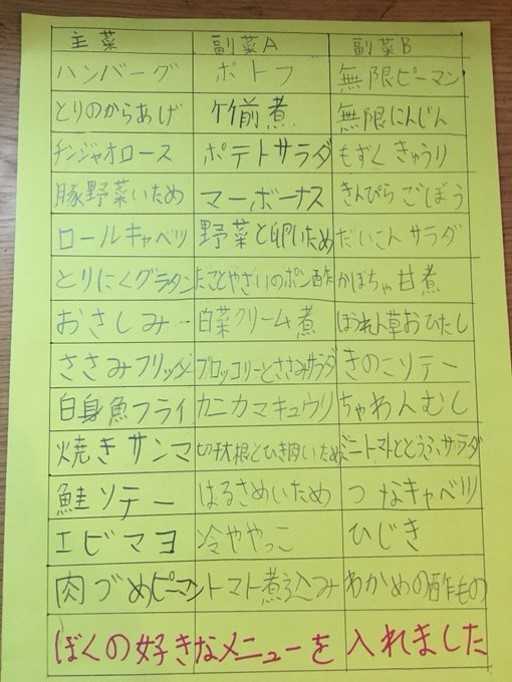 主菜 副菜A 副菜B
ハンバーグ ポトフ 無限ピーマン
とりのからあげ 竹前煮 無限にんじん
チンジャオロース ポテトサラダ もずくきゅうり
豚野菜いため マーボーナス きんぴらごぼう
ロールキャベツ 野菜と卵いため だいこんサラダ
とりにくグラタン たことやさいのポン酢 かぼちゃ甘煮
おさしみ 白菜クリーム煮 ほうれん草おひたし
ささみフリッター ブロッコリーとささみサラダ きのこソテー
白身魚フライ カニカマキュウリ ちゃわんむし
焼きサンマ 切干大根とひき肉いため ミニトマトととうふサラダ
鮭ソテー はるさめいため つなキャベツ
エビマヨ 冷ややっこ ひじき
肉づめピーマン トマト煮込み わかめの酢もの
ぼくの好きなメニューを入れました